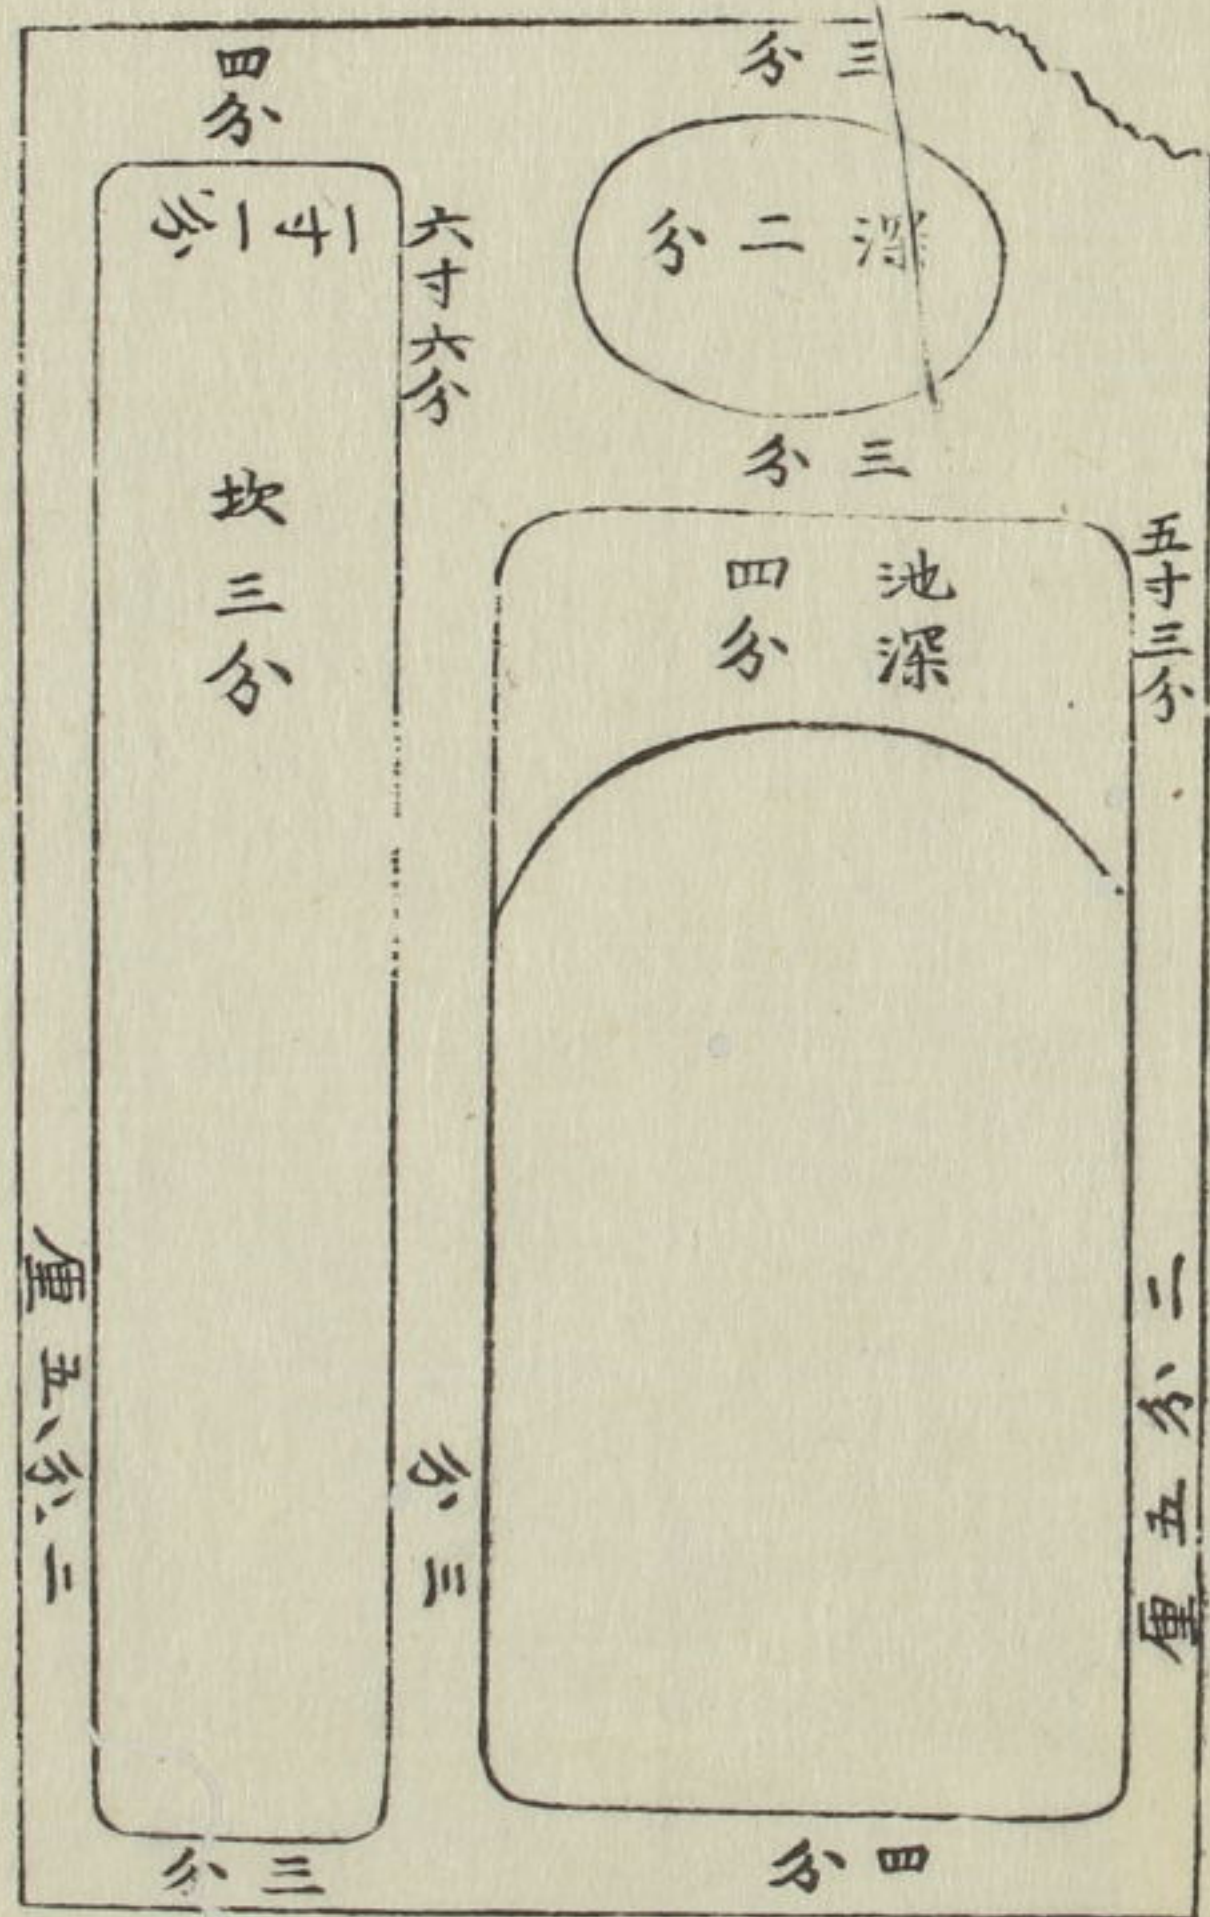 三分
深二分
三分
池深
四分
五寸三分
二分五厘
四分
四分
一寸一分
六寸六分
坎三分
三分
二分五厘
三分